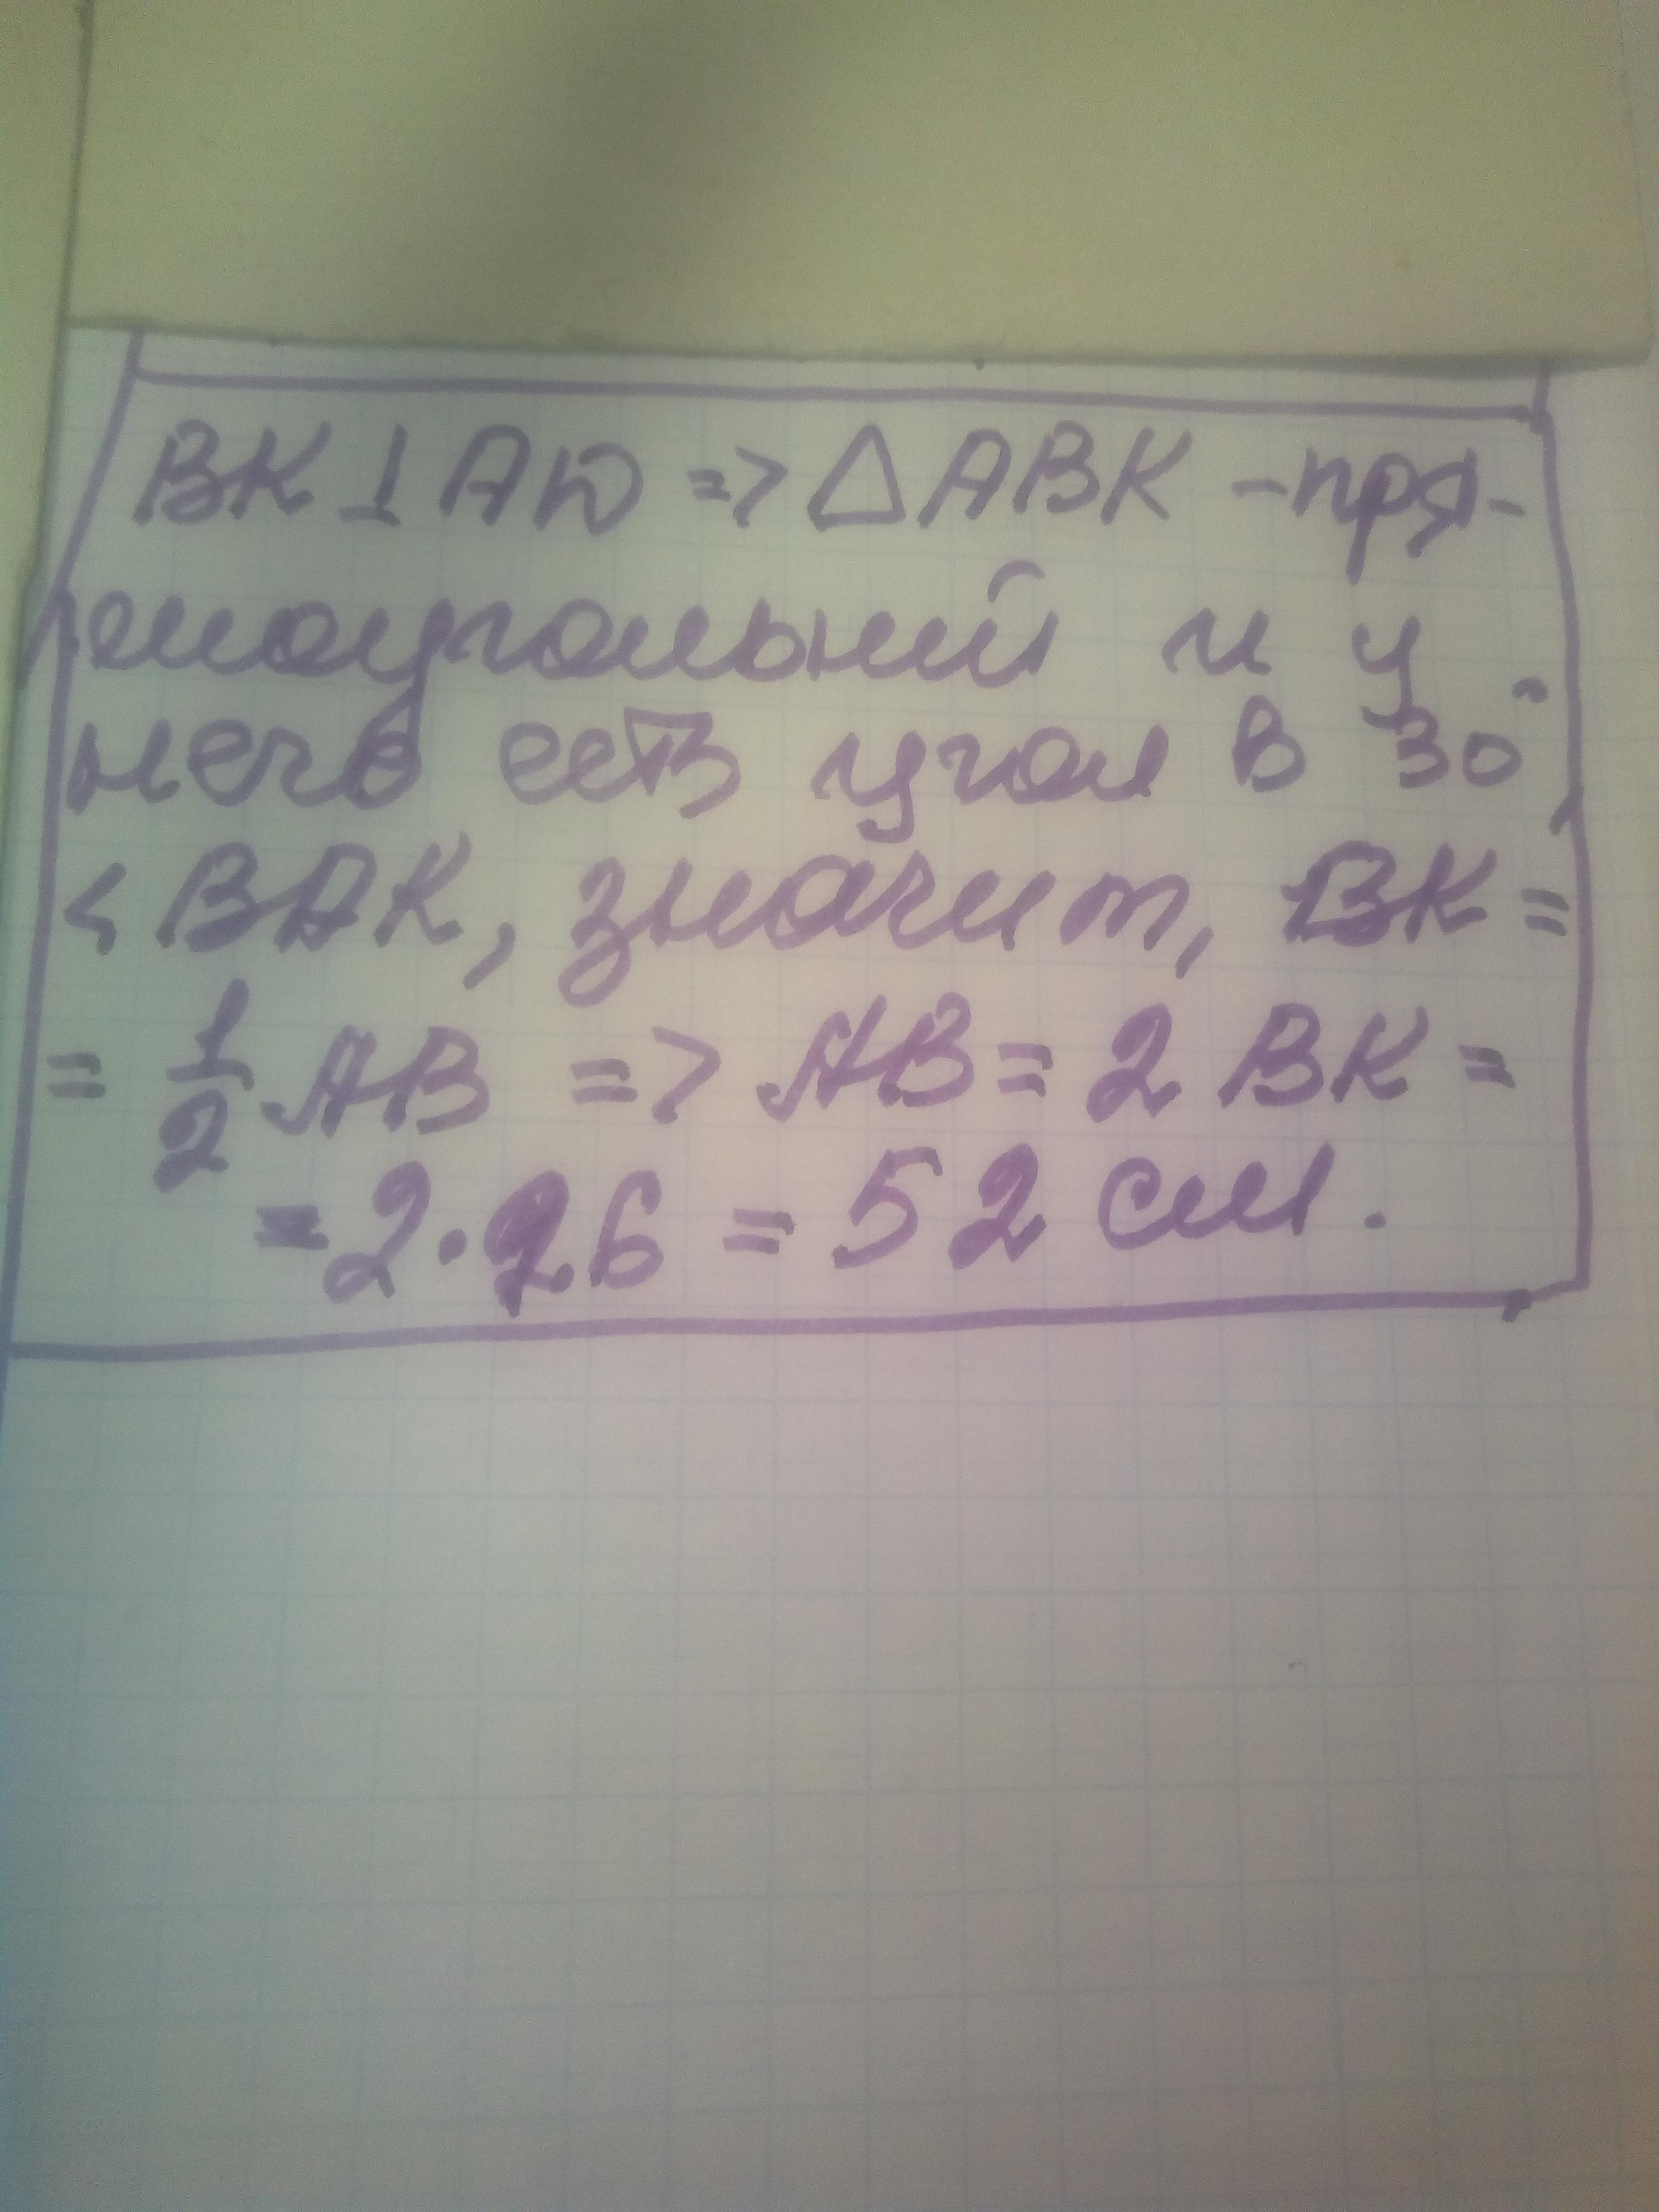 BK ⊥ AD => △ABK - пря-
моугольный и у
него есть угол в 30°,
< BAK, значит, BK =
= 1/2 AB => AB = 2 BK =
= 2 · 26 = 52 см.